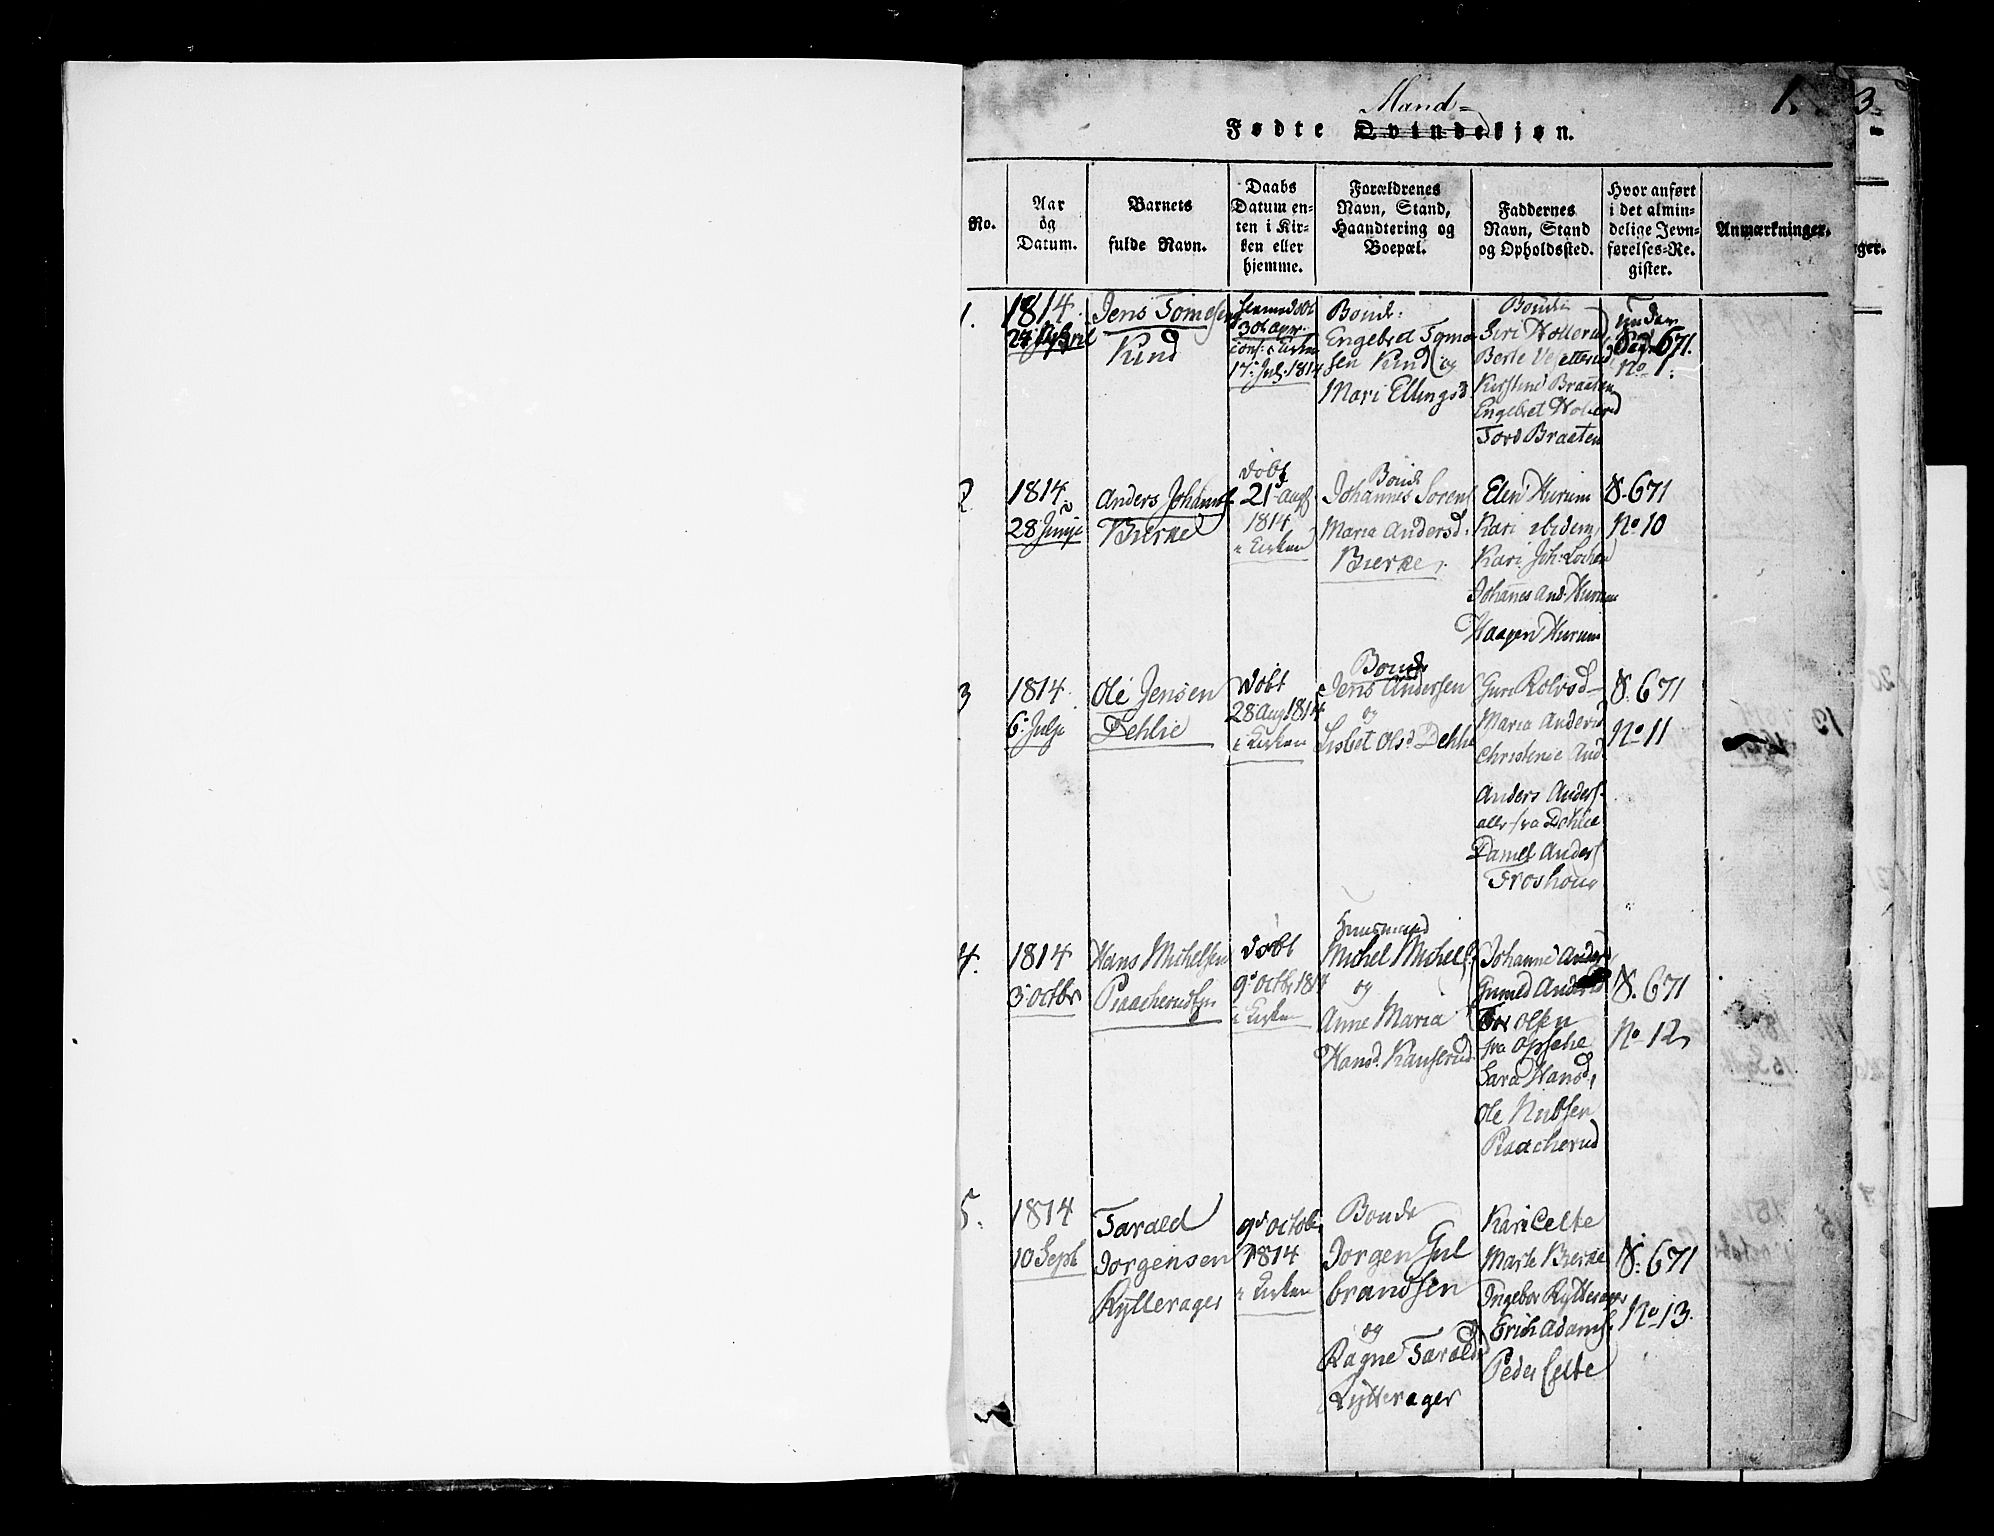 1.
3.
Mand=
Fødte Qvindekjøn.
No.
Aar
og
Datum.
Barnets
fulde Navn.
Daabs
Datum en-
ten i Kir-
ken eller
hjemme.
Forældrenes
Navn, Stand,
Haandtering og
Boepæl.
Faddernes
Navn, Stand
og Opholdssted.
Hvor anført
i det almin-
delige Jevn-
førelses-Re-
gister.
Anmærkninger.
1.
1814
24 April
Jens
Kind
hiemmedøbt
30t Apr.
Kirken
17. Jul. 1814
Bonde
Engebret
sen Kind og
Mari Ellingsd
Siri Hollerud
Kirstine Braaten
Engebret Hollerud
Tord Braaten
S. 671.
No 1.
2
1814
28 Junje
Anders Johanns
Bierke
døbt
21 Augs
1814
i Kirken
Bonde
Johannes Sorens
Maria Andersd.
Bierke.
Elen Hurum
Kari ibidem
Kari Joh: Lochen
Johanes And. Hurum
Haagen Hurum
S. 671
No 10
3
1814
6. Julje
Ole Jensen
Dehlie
døbt
28 Aug 1814
i Kirken
Bonde
Jens Andersen
og
Lisbet Olsd Dehlie
Guri Rolvsd
Maria Andersd
Christine And.
Anders Anders.
alle fra Dehlie
Daniel Anders
Froshoug
S. 671
No 11
4.
1814
3 Octbr
Hans Michelsen
døbt
9d Octbr 1814
i Kirken
Huusmand
Michel Michels
og
Anne Maria
Hansd.
Johanne Anders
Gunild Andersd
Olsen
fra Opsehe
Sara Hansd,
Ole
Raacherud
S. 671
No 12
5.
1814
10 Sept
Tarald
Jorgensen
Rytterager
9d Octobr
1814
i Kirken
Bonde
Jorgen Gul
brandsen
og
Ragne Taralds
Rytterager
Kari Celte
Marte Bierke
Ingebor Rytterager
Erich Adams.
Peder Celte
S. 671
No 13.